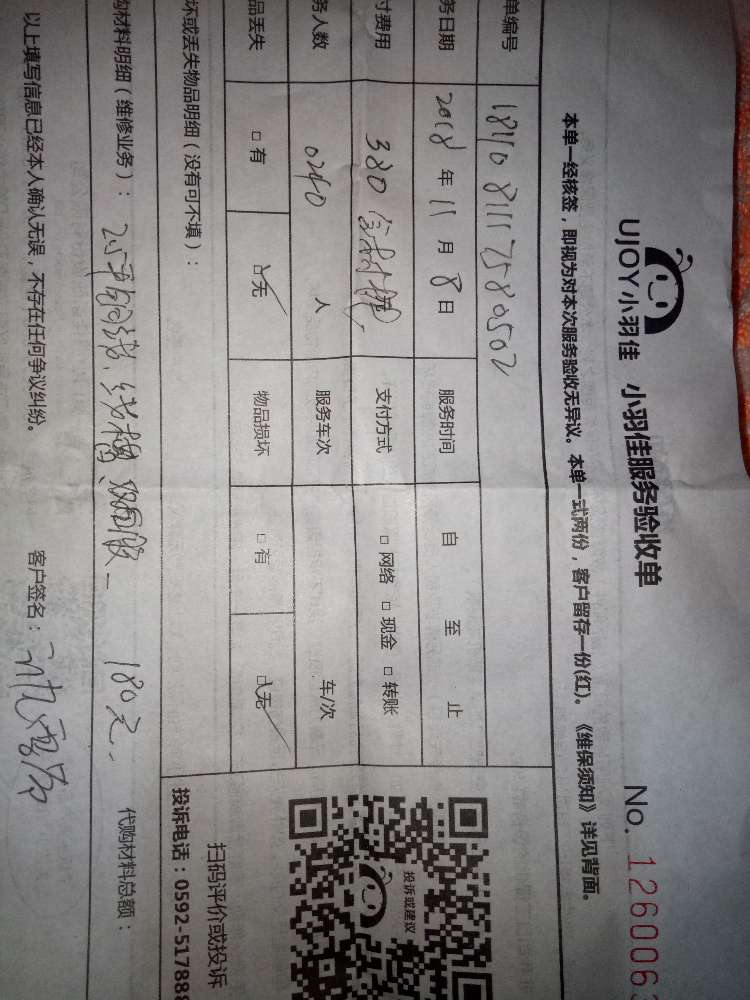 UJOY小羽佳 小羽佳服务验收单 No. 126006
本单一经核签，即视为对本次服务验收无异议。本单一式两份，客户留存一份(红)。《维保须知》详见背面。
单编号 1811081117580502
务日期 2018 年 11 月 8 日 服务时间 自 至 止
付费用 380 含材料 支付方式 □ 网络 □ 现金 □ 转账
务人数 0240 人 服务车次 车/次
品丢失 □ 有 □ 无 物品损坏 □ 有 □ 无
坏或丢失物品明细（没有可不填）：
投诉或建议
扫码评价或投诉
投诉电话：0592-517888
购材料明细（维修业务）： 2.5平 线槽、 180元 代购材料总额：
以上填写信息已经本人确认无误，不存在任何争议纠纷。 客户签名：